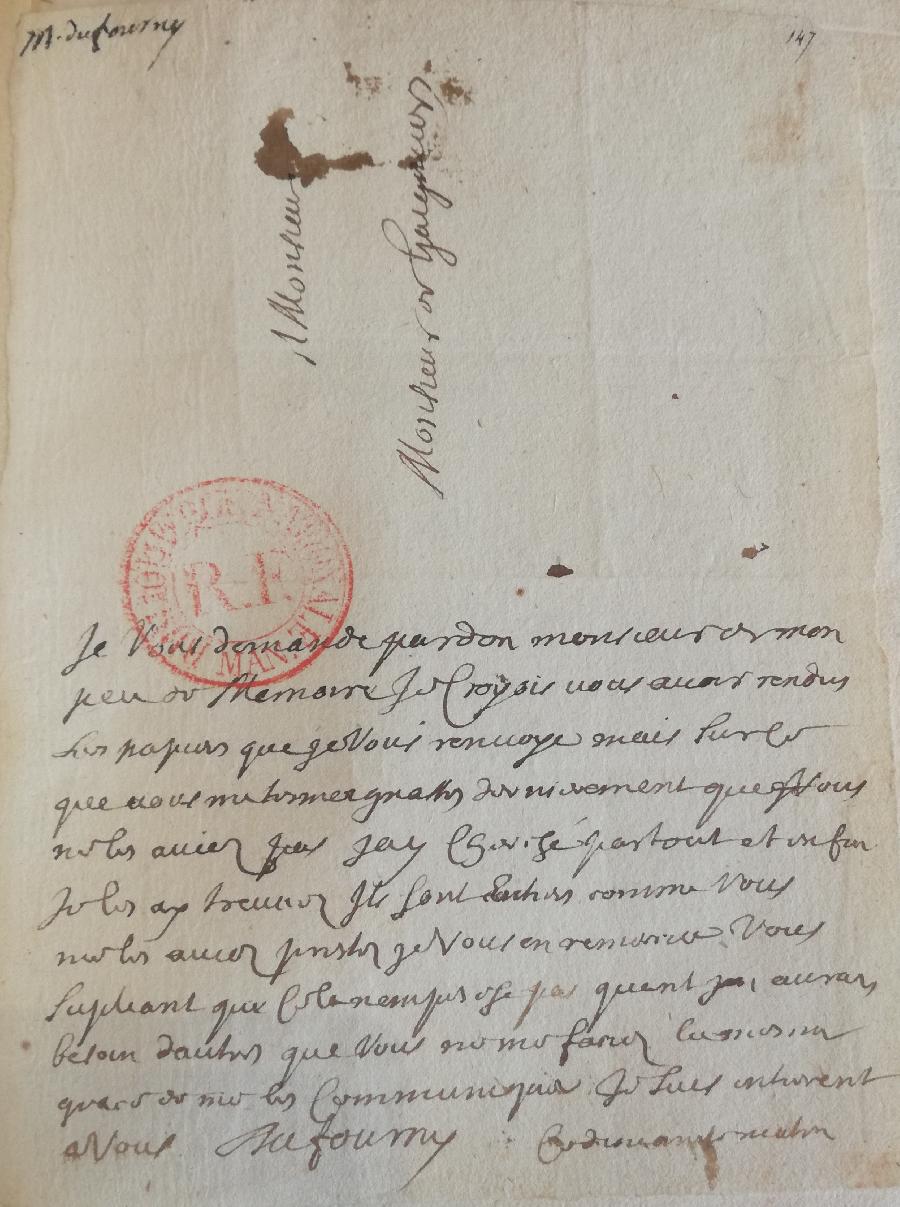 M. dufourny
147
A Monsieur
Monsieur de Gaignieres
BIBLIOTHEQUE NATIONALE MANUSCRITS R.F.
Je Vous demande pardon monsieur de mon
peu de Memoire Je Croyois vous auoir rendus
Les papiers que Je Vous renuoye mais Sur ce
que vous me tesmoignastes dernierement que Vous
ne les auiez pas Jay Cherché partout et enfin
Je les ay treuuez Ils sont Entiers comme Vous
me les auiez prestez Je Vous en remercie Vous
Supliant que Cela nempesche pas quant jauray
besoin dautres que Vous ne me faciez la mesme
grace de me les Communiquer Je Suis entierement
a Vous Dufourny Ce dimanche matin